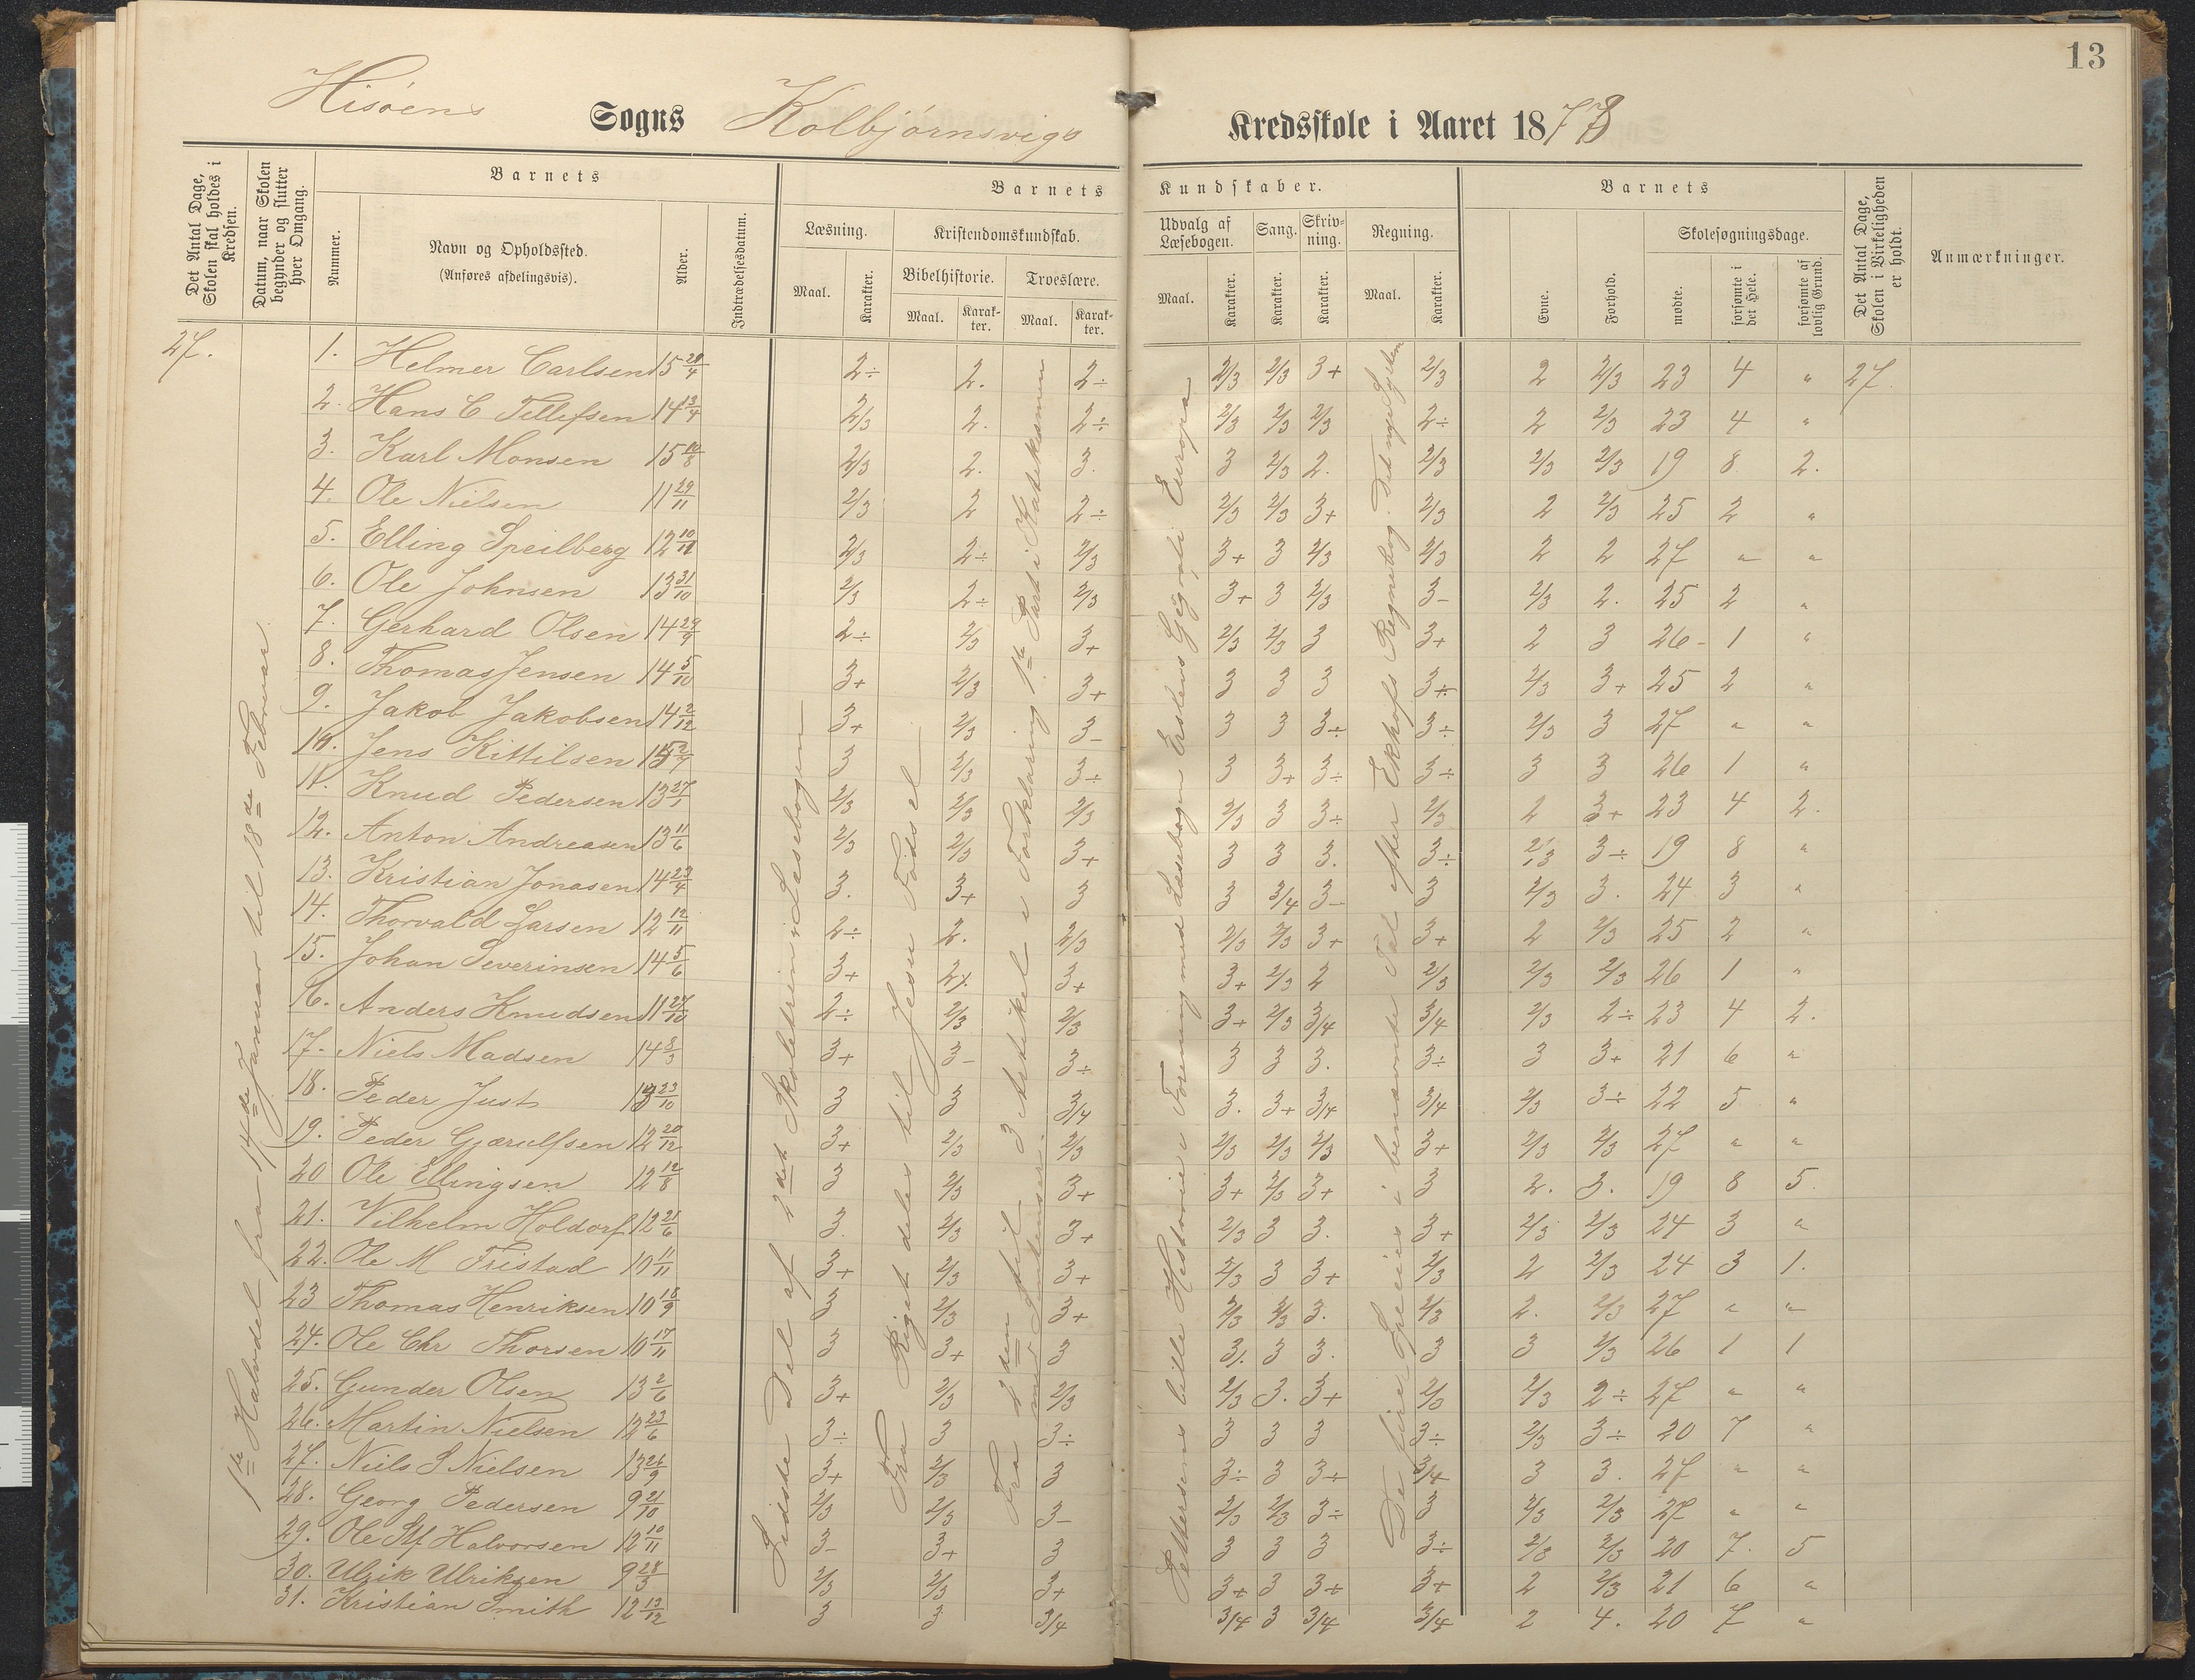 13
Hisöens Sogns Kolbjörnsvigs Kredsskole i Aaret 187
Det Antal Dage, Skolen skal holdes i Kredsen.
Datum, naar Skolen begynder og slutter hver Omgang.
Barnets
Nummer.
Navn og Opholdssted.
(Anføres afdelingsvis).
Alder.
Indtrædelsesdatum.
Barnets Kundskaber.
Læsning.
Maal.
Karakter.
Kristendomskundskab.
Bibelhistorie.
Maal.
Karakter.
Troeslære.
Maal.
Karakter.
Udvalg af Læsebogen.
Maal.
Karakter.
Sang.
Karakter.
Skrivning.
Karakter.
Regning.
Maal.
Karakter.
Barnets
Evne.
Forhold.
Skolesøgningsdage.
mødte.
forsømte i det Hele.
forsømte af lovlig Grund.
Det Antal Dage, Skolen i Virkeligheden er holdt.
Anmærkninger.
27.
1te Halvdel fra 14de Januar til 18de Februar.
Sidste Del af 2det Skoletrin i Læsebogen
Fra Riget deles til Jesu Fødsel
Fra 2den til 3 Artikel i Forklaring. 1te Part i Katekismen
Pettersens lille Historie i Forening med Læsebogen Erslevs Geografi Europa
De fire Species i benævnte Tal efter Ekhofs Regnebog.
1. Helmer Carlsen 15 20/4 2÷ 2. 2÷ 2/3 2/3 3+ 2/3 2 2/3 23 4 " 27.
2. Hans C Tellefsen 14 13/4 2/3 2. 2÷ 2/3 2/3 2/3 2÷ 2 2/3 23 4 "
3. Karl Monsen 15 10/8 2/3 2. 3. 3 2/3 2. 2/3 2/3 2/3 19 8 2.
4. Ole Nielsen 11 29/11 2/3 2 2÷ 2/3 2/3 3+ 2/3 2 2/3 25 2 "
5. Elling Speilberg 12 10/11 2/3 2÷ 2/3 3+ 3 2/3 2/3 2 2 27 " "
6. Ole Johnsen 13 31/10 2/3 2÷ 2/3 3+ 3 2/3 3- 2/3 2. 25 2 "
7. Gerhard Olsen 14 29/9 2÷ 2/3 3+ 2/3 2/3 3 3+ 2 3 26 - 1 "
8. Thomas Jensen 14 5/10 3+ 2/3 3+ 3 3 3 3÷ 2/3 3+ 25 2 "
9. Jakob Jakobsen 14 2/12 3+ 2/3 3- 3 3 3÷ 3÷ 2/3 3 27 " "
10. Jens Kittilsen 3 2/3 3÷ 3 3+ 3÷ 3÷ 3 3 26 1 "
11. Knud Pedersen 13 27/1 2/3 2/3 2/3 2/3 3 3÷ 2/3 2 3+ 23 4 2.
12. Anton Andreasen 13 11/6 2/3 2/3 3+ 3 3 3. 3÷ 2/3 3÷ 19 8 "
13. Kristian Jonasen 14 23/4 3. 3+ 3 3 3/4 3- 3 2/3 3. 24 3 "
14. Thorvald Larsen 12 12/11 2÷ 2. 2/3 2/3 2/3 3+ 3+ 2 2/3 25 2 "
15. Johan Severinsen 14 5/6 3+ 2/. 3+ 3+ 2/3 2 2/3 2/3 2/3 26 1 "
16. Anders Knudsen 11 27/10 2÷ 2/3 2/3 3+ 2/3 3/4 3/4 2/3 2÷ 23 4 2.
17. Niels Madsen 14 8/3 3+ 3- 3÷ 3 3 3. 3÷ 3 3+ 21 6 "
18. Peder Just 13 23/10 3 3 3/4 3. 3+ 3/4 3/4 2/3 3÷ 22 5 "
19. Peder Gjærulfsen 12 20/12 3+ 2/3 2/3 2/3 2/3 2/3 3+ 2/3 2/3 27 " "
20 Ole Ellingsen 12 12/8 3 2/3 3+ 3+ 2/3 3+ 3 2. 3. 19 8 5.
21. Vilhelm Holdorf 12 21/6 3. 2/3 3+ 2/3 3 3. 3+ 2/3 2/3 24 3 "
22. Ole M Fristad 10 11/11 3+ 2/3 3+ 2/3 3 3+ 2/3 2 2/3 24 3 1.
23 Thomas Henriksen 10 18/9 3 2/3 3+ 2/3 2/3 3. 2/3 2. 2/3 27 " "
24. Ole Chr Thorsen 10 17/11 3 3+ 3 3/. 3 3. 3 3 2/3 26 1 1
25. Gunder Olsen 13 2/6 3+ 2/3 2/3 2/3 3. 3+ 2/3 2/3 2÷ 27 " "
26. Martin Nielsen 12 23/6 3÷ 3 3÷ 3 3 3 3÷ 2/3 3÷ 20 7 "
27. Niels S Nielsen 13 26/9 3+ 2/3 3 3÷ 3 3÷ 3/4 3 3. 27 " "
28. Georg Pedersen 9 21/10 2/3 2/3 3- 2/3 2/3 3÷ 3 2/3 2/3 27 " "
29. Ole Stf Halvorsen 12 10/11 3- 3+ 3 3 3 3 3÷ 2/3 2/3 20 7. 5
30. Ulrik Ulriksen 9 28/3 2/3 2/3 3+ 3+ 3 3+ 3+ 2 2/3 21 6 "
31. Kristian Smith 12 13/12 3 3 3/4 3/4 3 3/4 3/4 2 4. 20 7 "